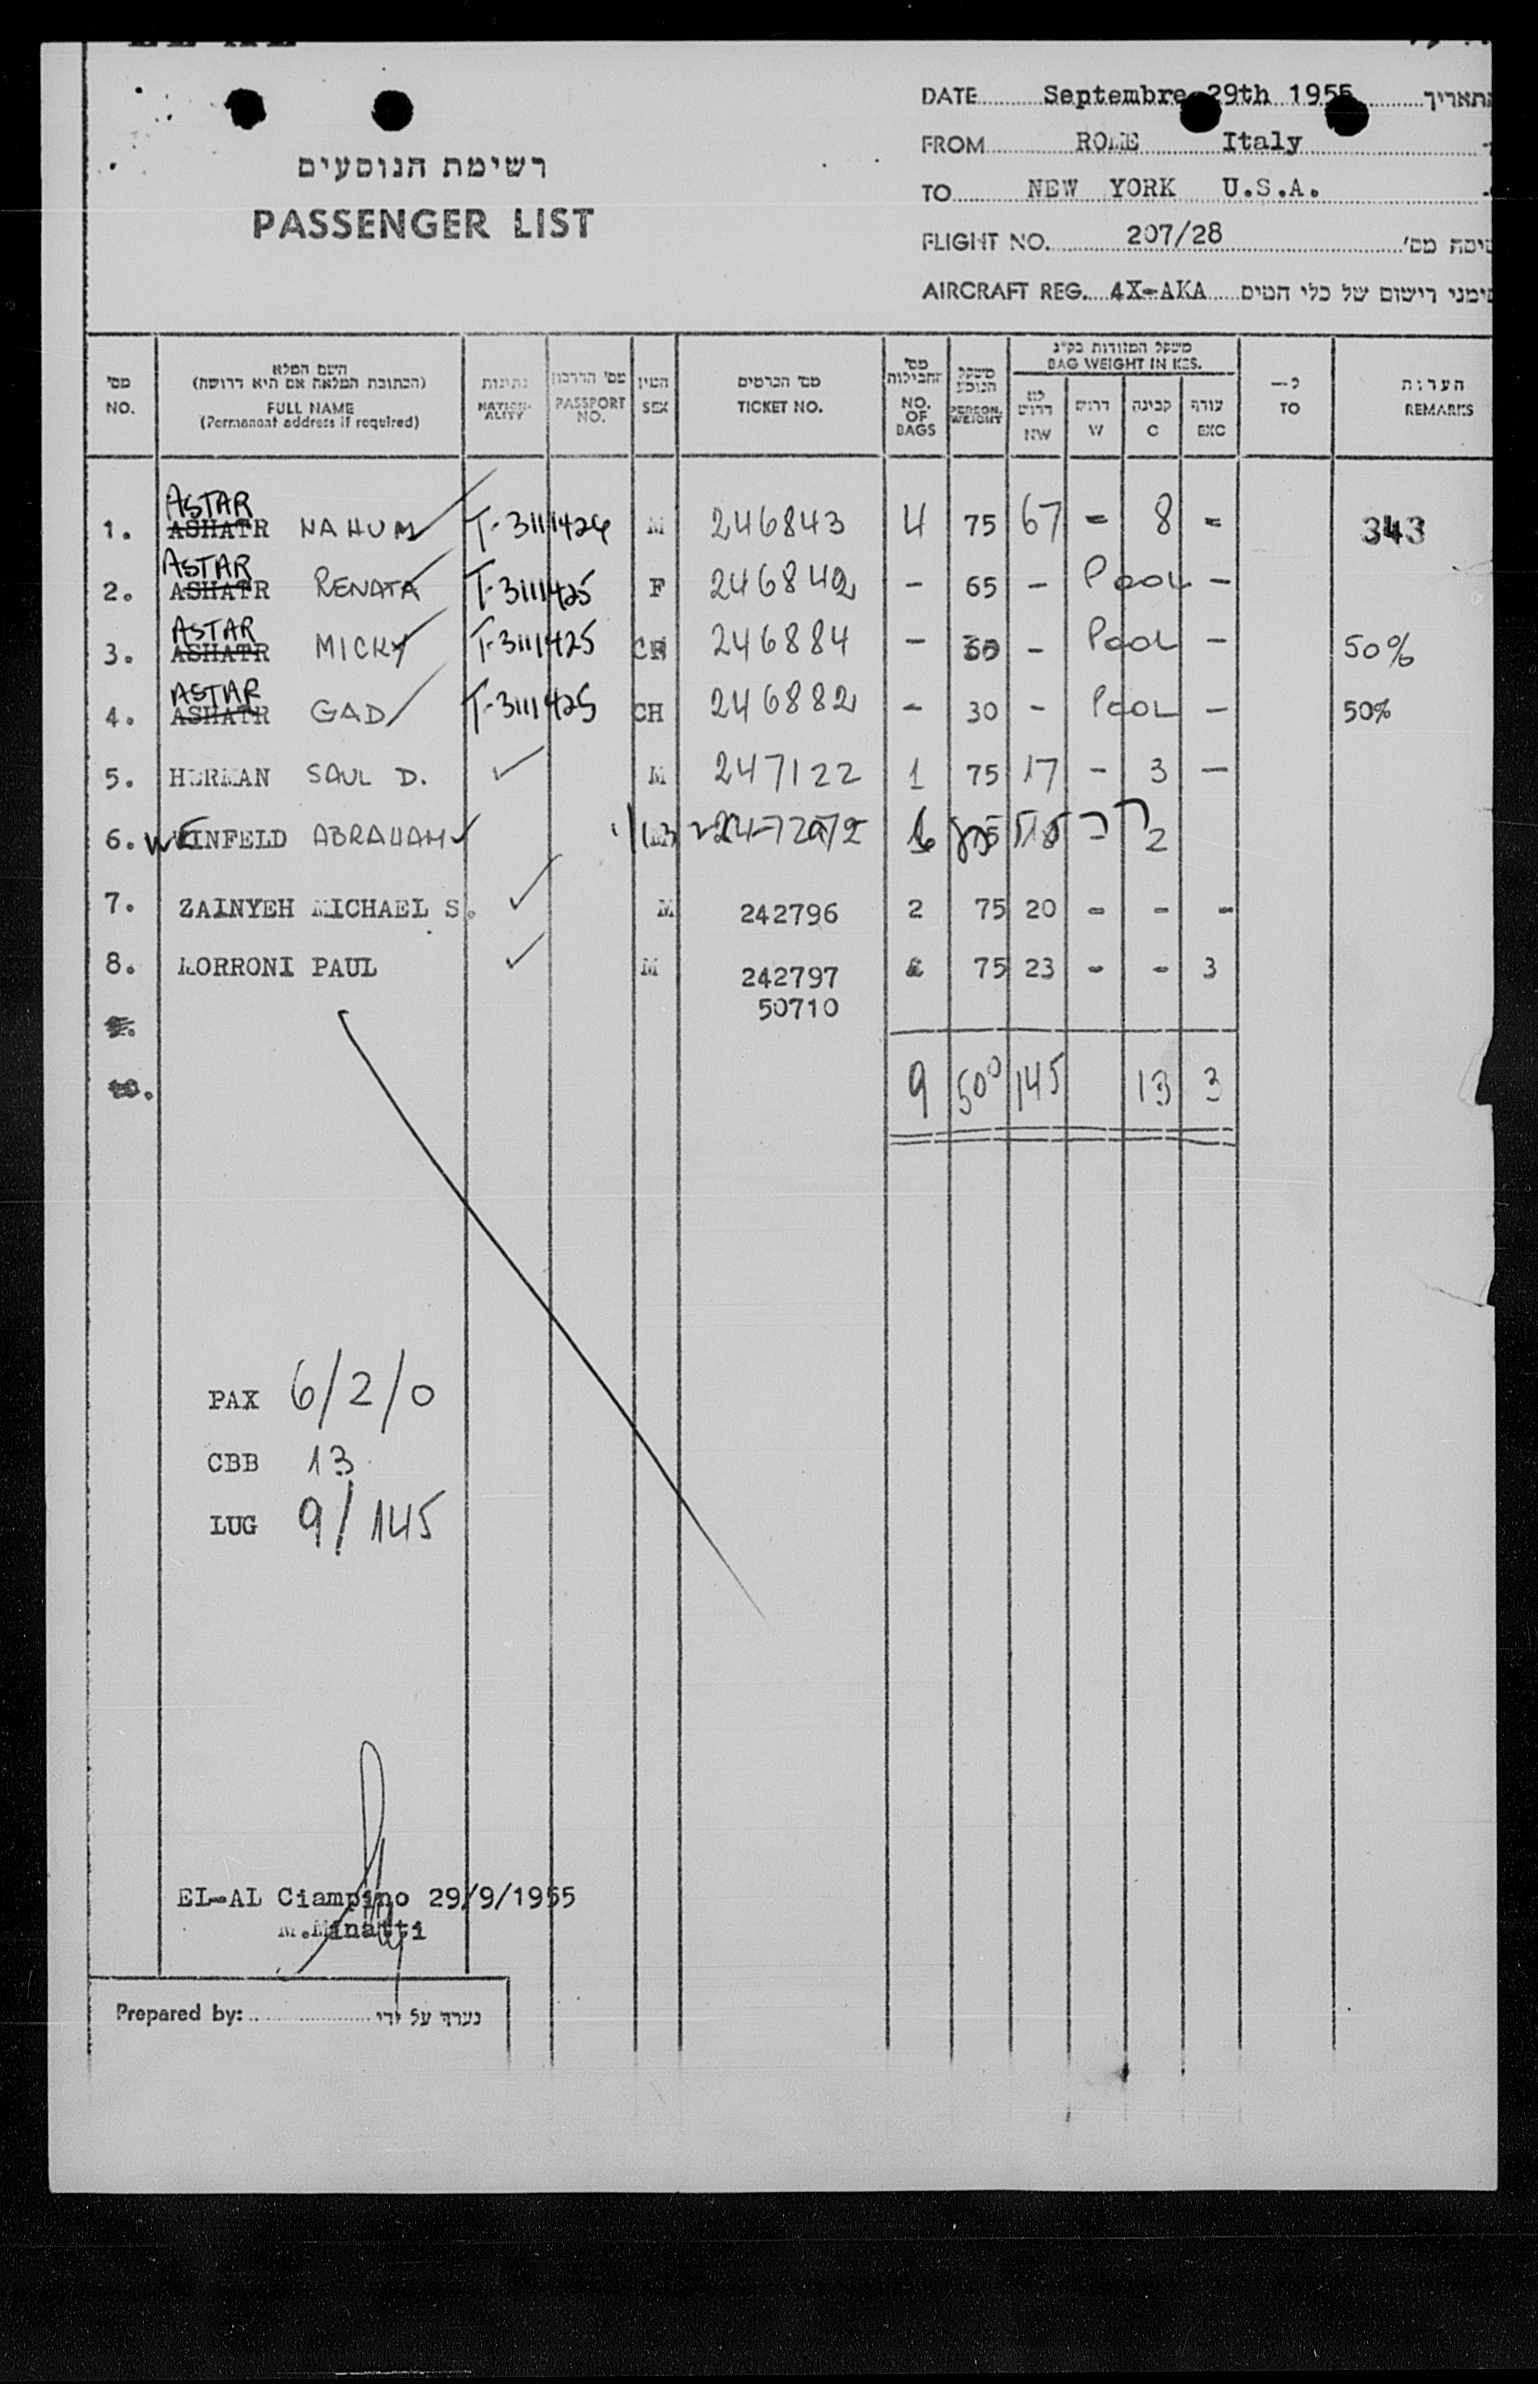 DATE Septembre 29th 1955 תאריך
FROM ROME Italy
TO NEW YORK U.S.A.
FLIGHT NO. 207/28 טיסה מס'
AIRCRAFT REG. 4X-AKA סימני רישום של כלי הטיס
רשימת הנוסעים
PASSENGER LIST
מס' השם המלא (הכתובת המלאה אם היא דרושה) נתינות מס' הדרכון המין מס' הכרטיס מס' החבילות משקל הנוסע משקל המזודות בק"ג לא דרוש דרוש קבינה עודף ל— הערות
NO. FULL NAME (Permanent address if required) NATION-ALITY PASSPORT NO. SEX TICKET NO. NO. OF BAGS PERSON. WEIGHT BAG WEIGHT IN KGS. NW W C EXC TO REMARKS
1. ASTAR ASHATR NAHUM T-3111426 M 246843 4 75 67 - 8 - 343
2. ASTAR ASHATR RENATA T-3111425 F 246842 - 65 - Pool -
3. ASTAR ASHATR MICKY T-3111425 CH 246884 - - Pool - 50%
4. ASTAR ASHATR GAD T-3111425 CH 246882 - 30 - Pool - 50%
5. HERMAN SAUL D. M 247122 1 75 17 - 3 -
6. WEINFELD ABRAHAM 2
7. ZAINYEH MICHAEL S. M 242796 2 75 20 - - -
8. PAUL M 242797 75 23 - - 3
50710
9.
10.
9 500 145 13 3
PAX 6/2/0
CBB 13
LUG 9/145
EL-AL Ciampino 29/9/1955
M.Minatti
Prepared by: נערך על ידי